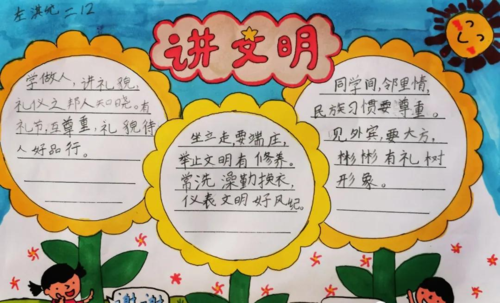 左洪优 二.12
讲文明
学做人，讲礼貌，
礼仪之邦人人知晓。有
礼节，互尊重，礼貌待
人好品行。
坐立走，要端庄，
举止文明有修养。
常洗澡勤换衣，
仪表文明好风纪。
同学间，邻里情，
民族习惯要尊重。
见外宾，要大方，
彬彬有礼树
形象。
谢谢